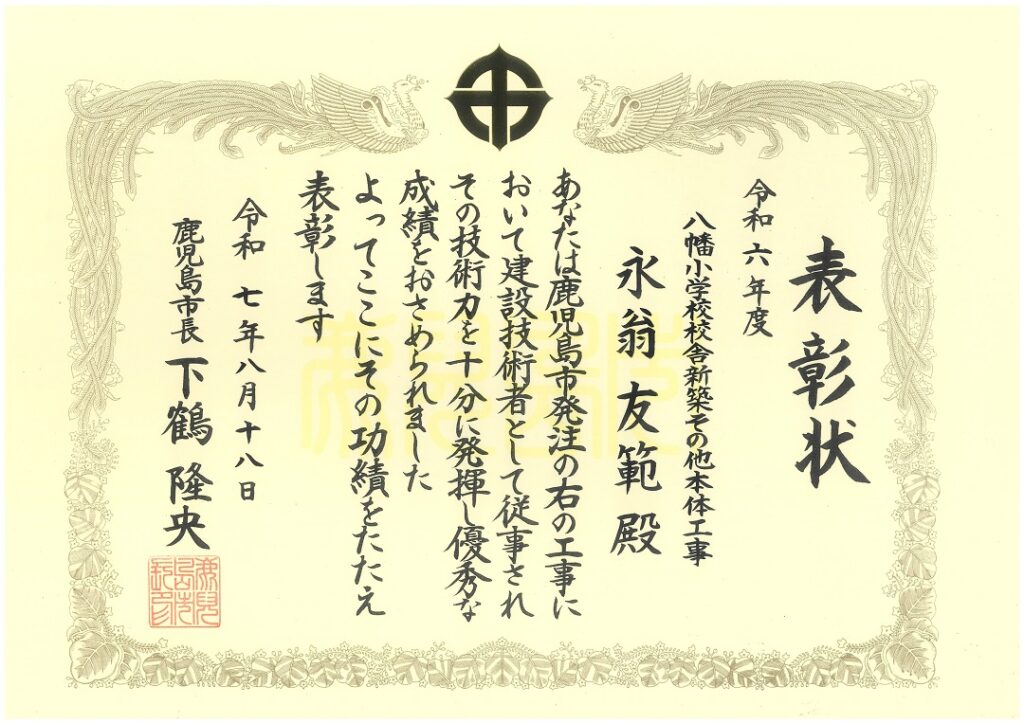 表彰状
令和六年度
八幡小学校校舎新築その他本体工事
永翁友範殿
あなたは鹿児島市発注の右の工事に
おいて建設技術者として従事され
その技術力を十分に発揮し優秀な
成績をおさめられました
よってここにその功績をたたえ
表彰します
令和七年八月十八日
鹿児島市長 下鶴隆央